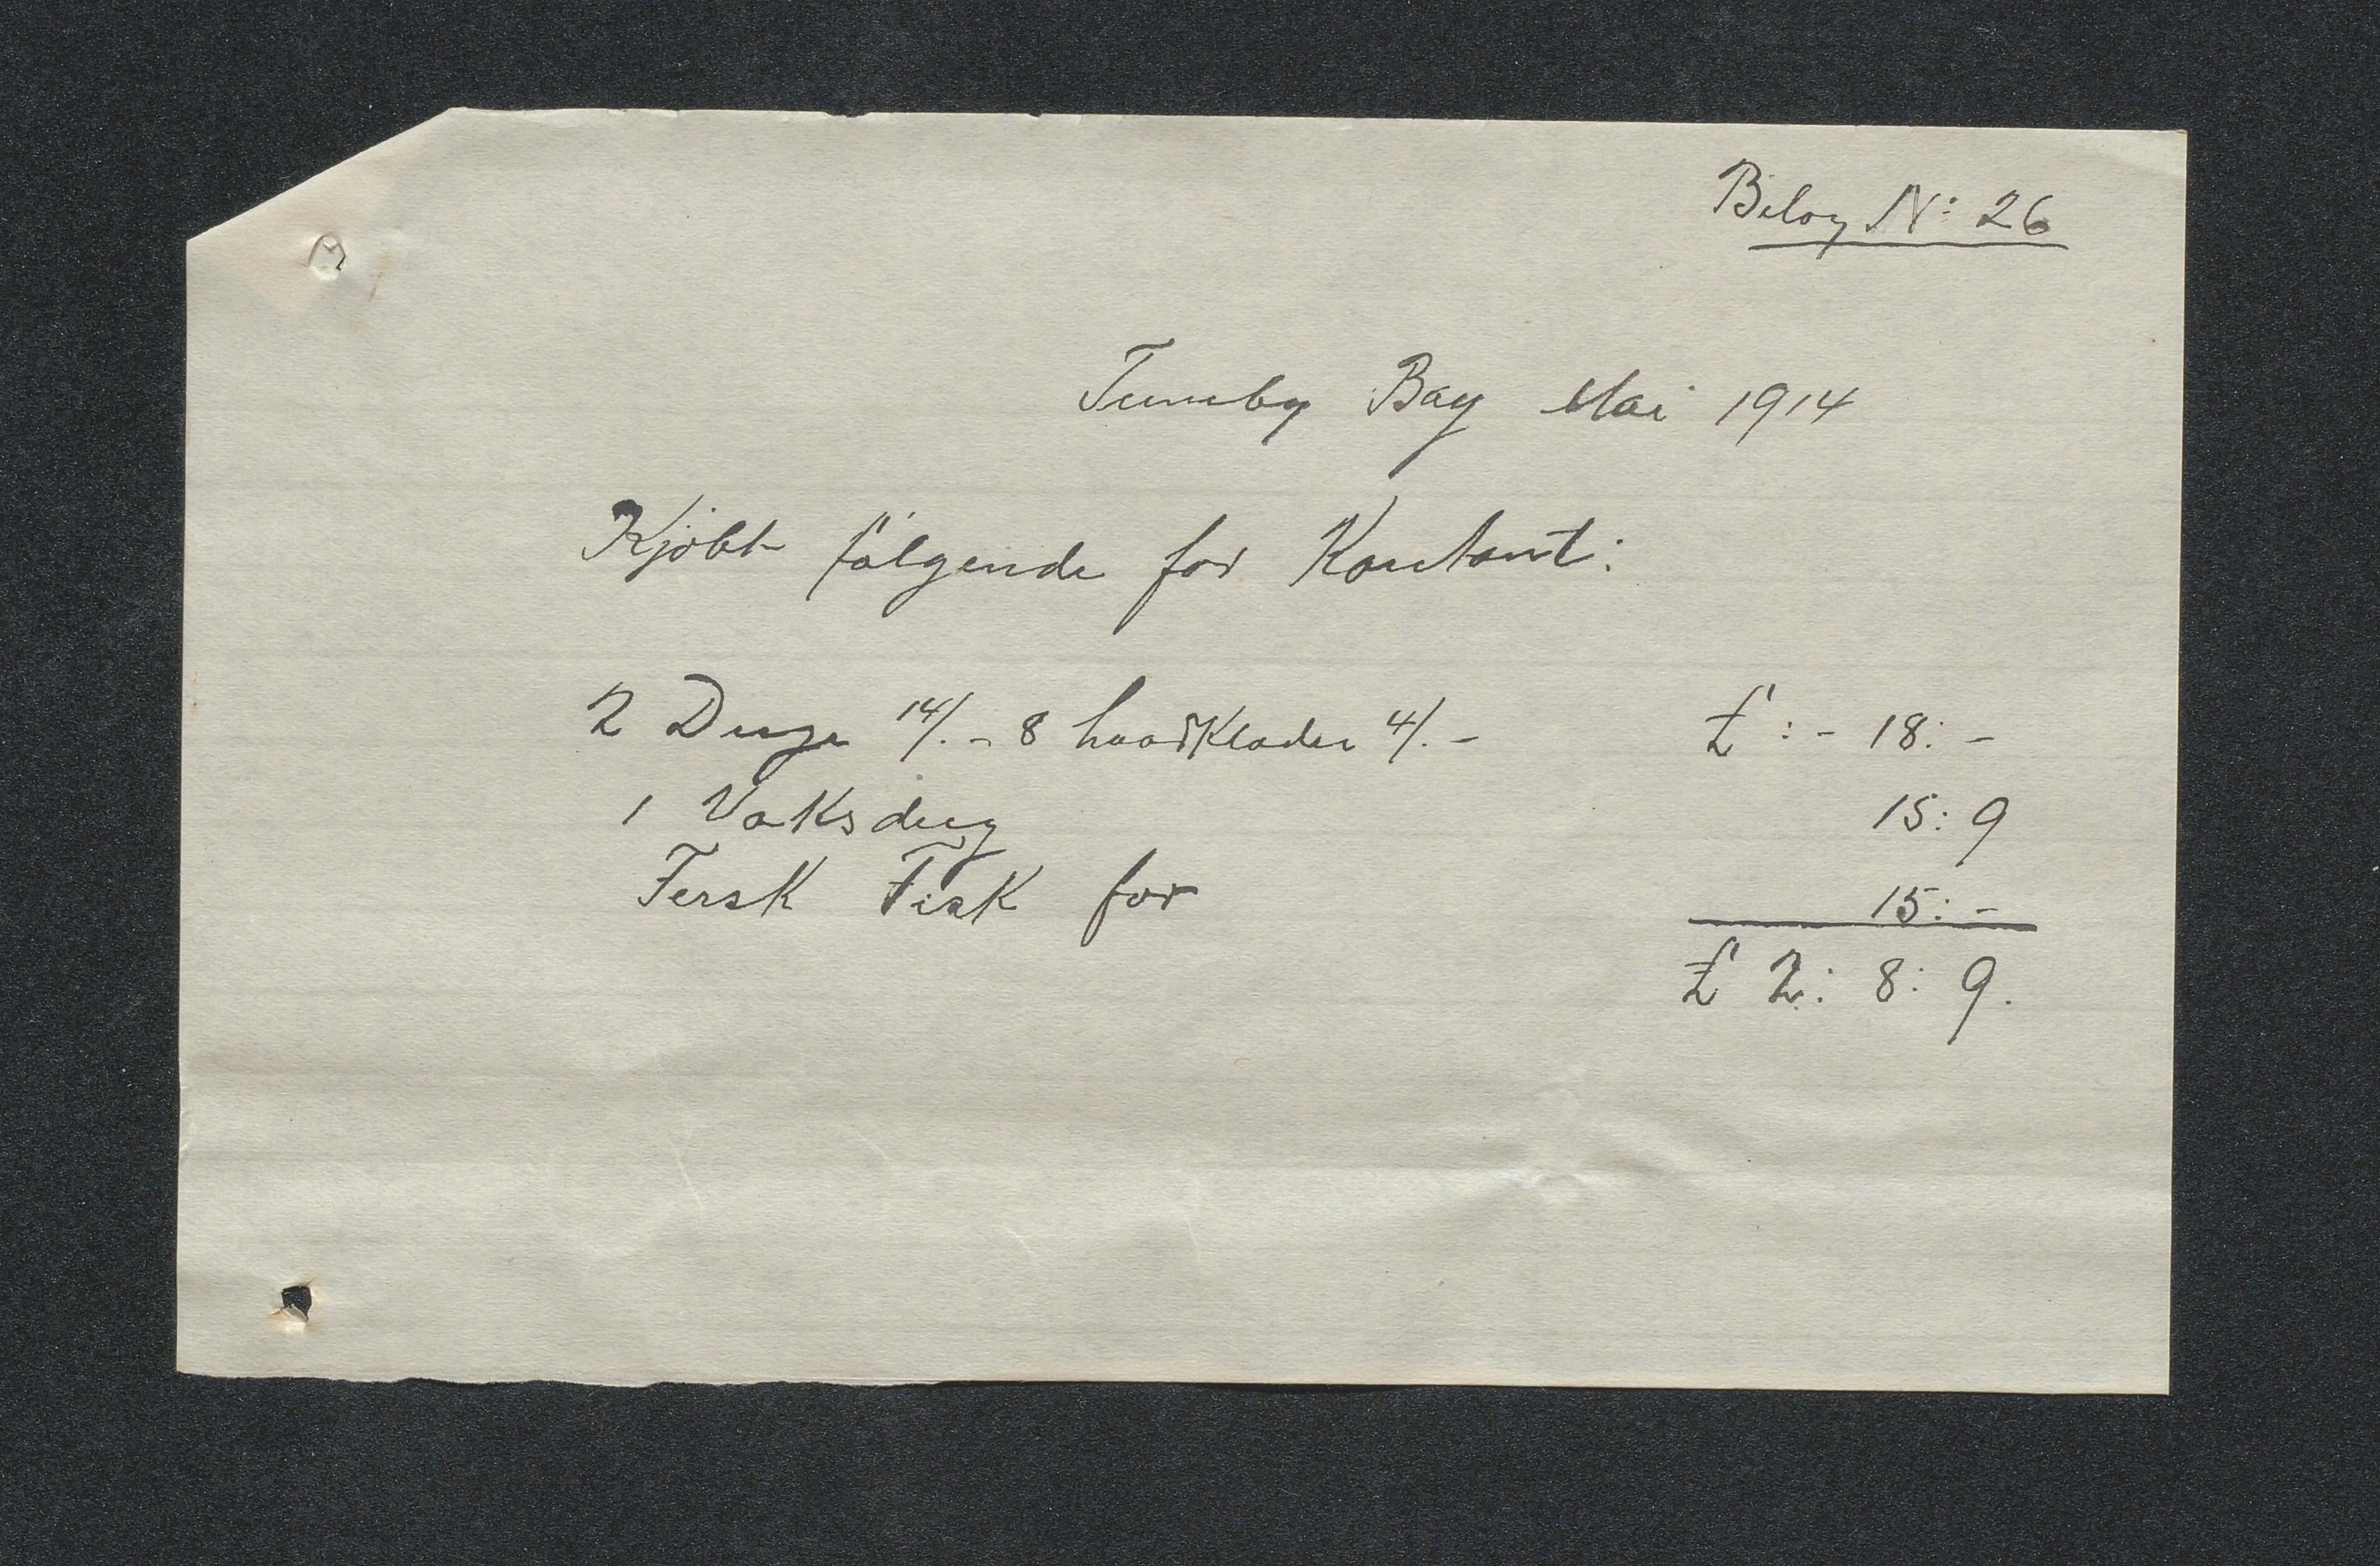 Bilag N: 26
Tumby Bay Mai 1914
Kjöbt fölgende for Kontant:
2 Duge 14/. - 8 haandKlæder 4/. - £ : - 18: -
1 Voksdug 15: 9
Fersk Fisk for 15: -
£ 2: 8: 9.